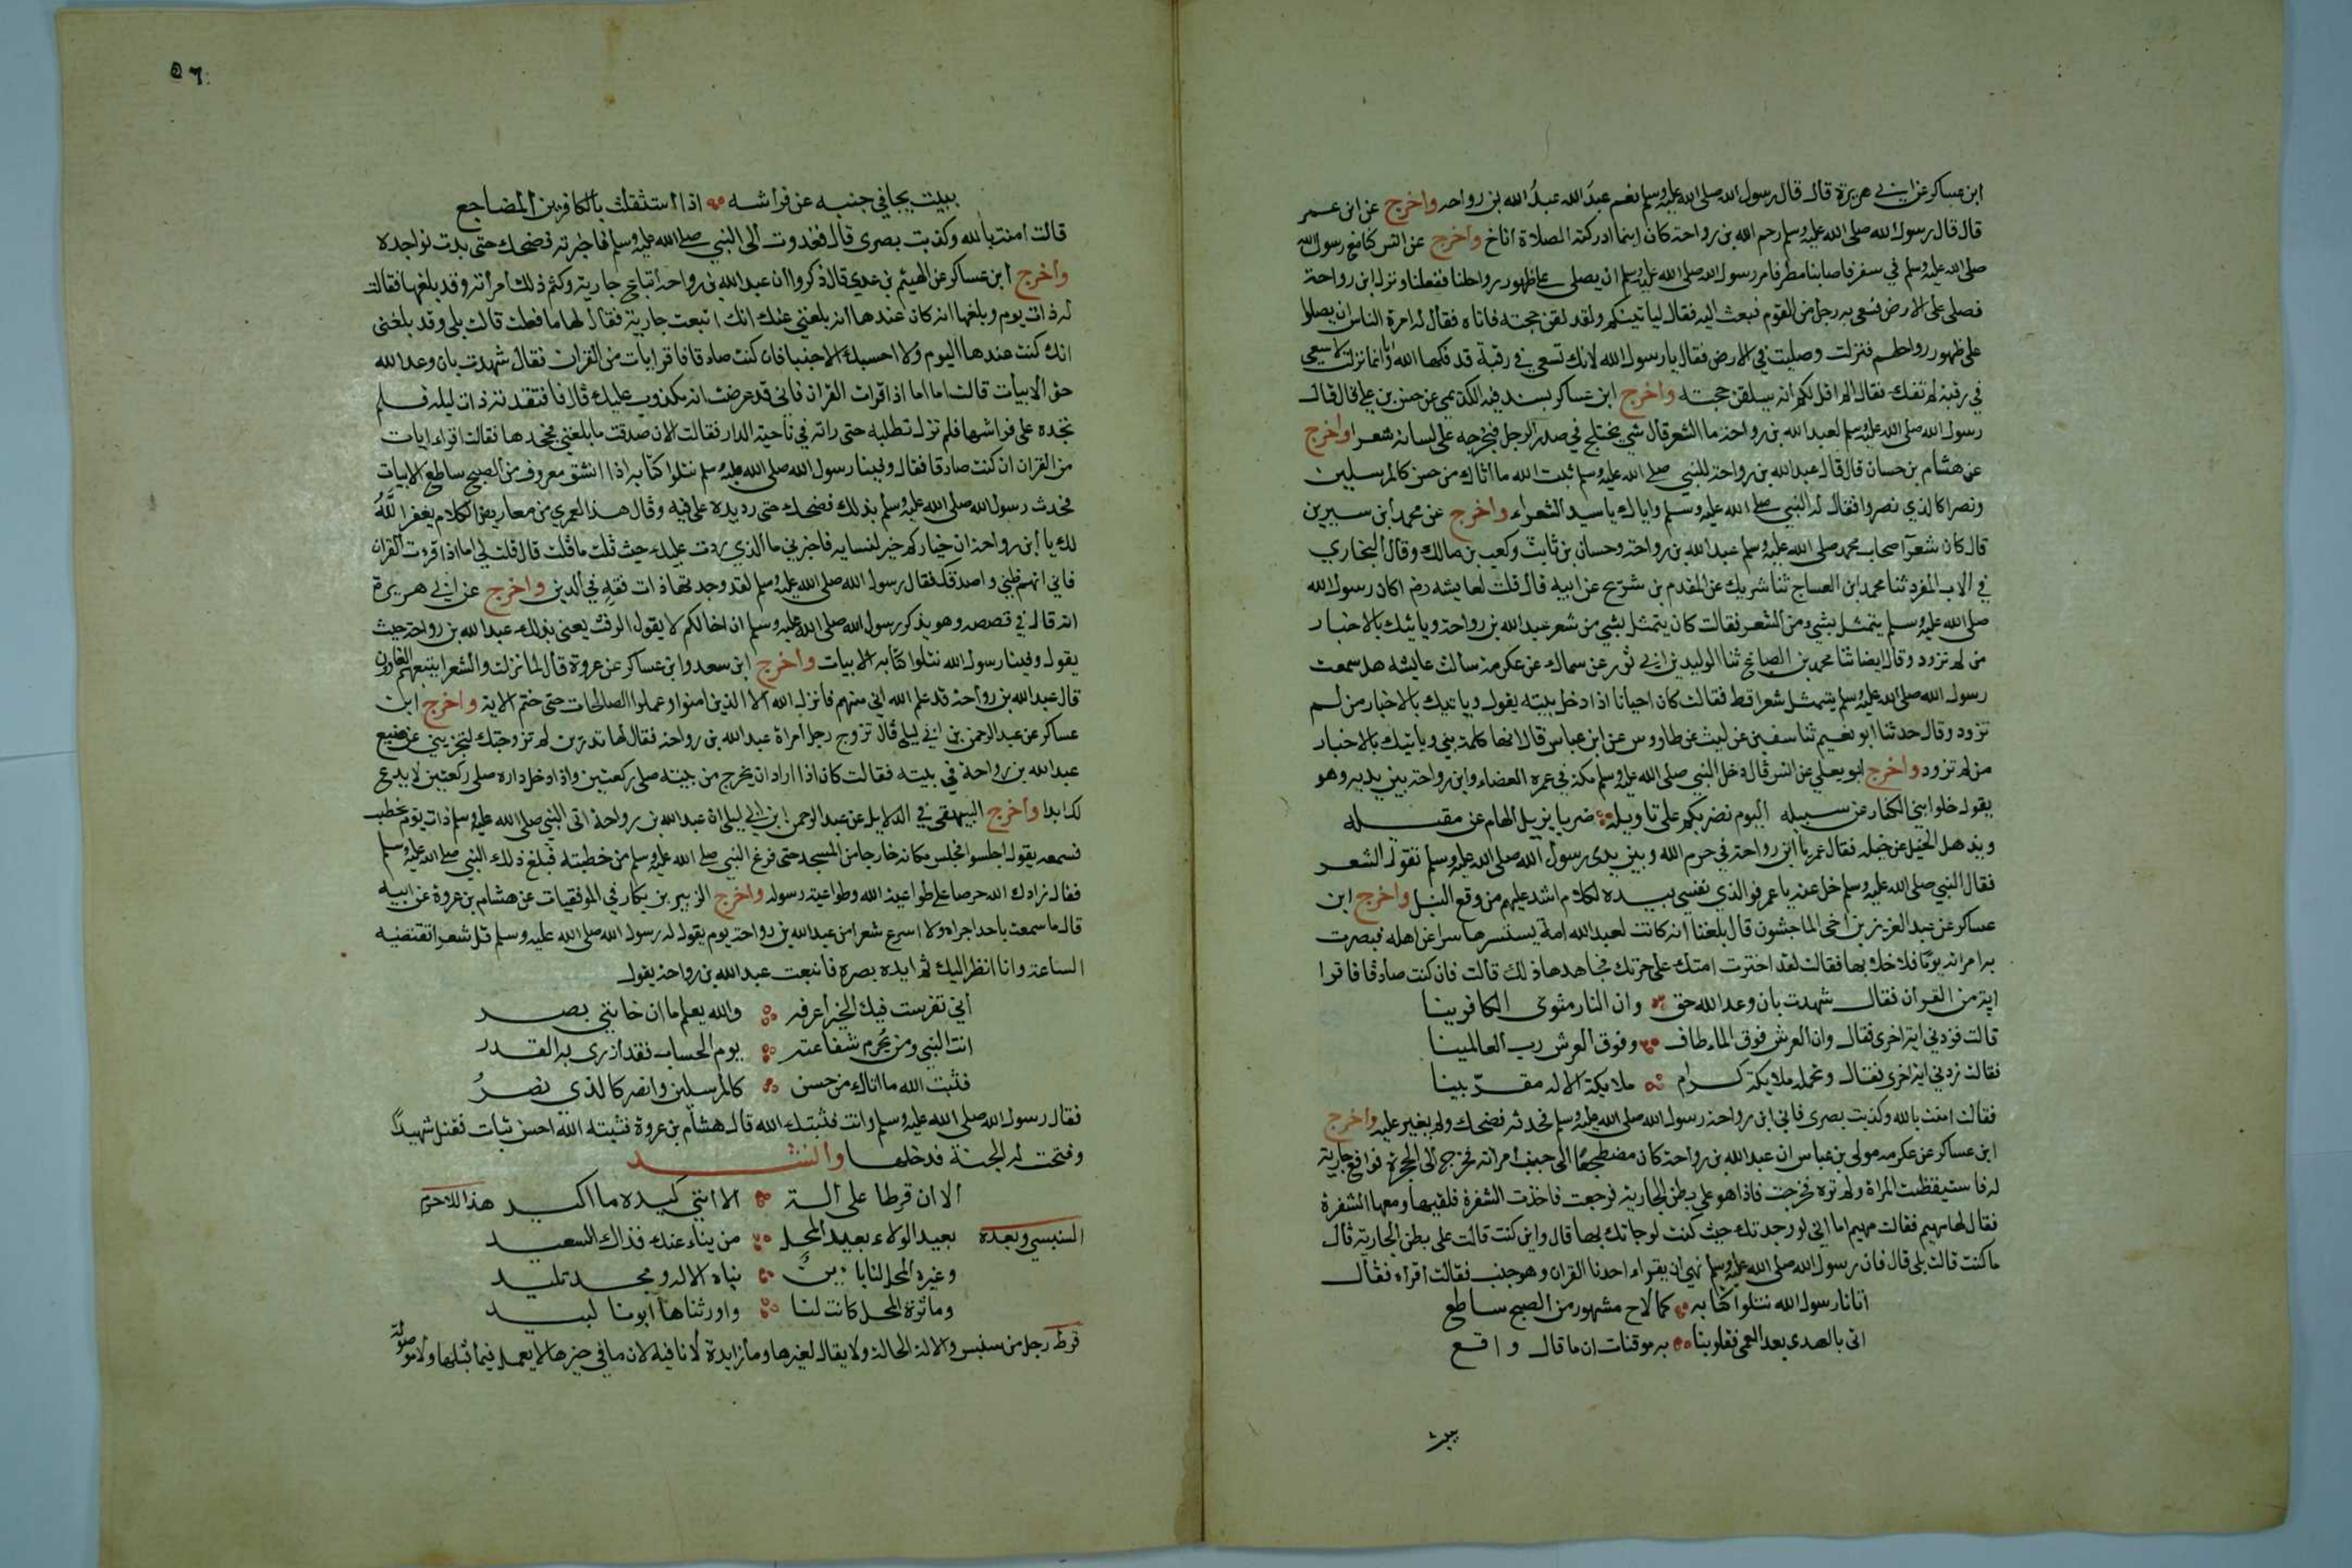 ابن عساكر عن ابي هريرة قال قال رسول الله صلى الله عليه وسلم نعم عبد الله عبد الله بن رواحه واخرج عن ابن عمر
قال قال رسول الله صلى الله عليه وسلم رحم الله بن رواحة كان اينما ادركته الصلاة اناخ واخرج عن انس كنا مع رسول الله
صلى الله عليه وسلم في سفر فاصابنا مطر فامر رسول الله صلى الله عليه وسلم ان يصلى على ظهور رواحلنا ففعلنا ونزل ابن رواحة
فصلى على الارض فسعى به رجل من القوم فبعث اليه فقال لياتينكم ولقد لقن حجته فاتاه فقال له امرة الناس ان يصلوا
على ظهور رواحلهم فنزلت وصليت في الارض فقال يا رسول الله لانك تسعى في رقبة قد فكها الله وانا انما نزلت لاسعى
في رقبة لم تفك فقال الم اقل لكم انه سيلقن حجته واخرج ابن عساكر بسند فيه الكديمى عن حسن بن علي قال قال
رسول الله صلى الله عليه وسلم لعبد الله بن رواحة ما الشعر قال شي يختلج في صدر الرجل فيخرجه على لسانه شعرا واخرج
عن هشام بن حسان قال قال عبد الله بن رواحة للنبي صلى الله عليه وسلم ثبت الله ما اتاك من حسن كالمرسلين
ونصرا كالذي نصروا فقال له النبي صلى الله عليه وسلم واياك يا سيد الشعراء واخرج عن محمد ابن سيرين
قال كان شعرآ اصحاب محمد صلى الله عليه وسلم عبد الله بن رواحة وحسان بن ثابت وكعب بن مالك وقال البخاري
في الادب المفرد ثنا محمد ابن الصباح ثنا شريك عن المقدم بن شريح عن ابيه قال قلت لعايشه رضي اكان رسول الله
صلى الله عليه وسلم يتمثل بشي من الشعر فقالت كان يتمثل بشي من شعر عبد الله بن رواحة وياتيك بالاخبار
من لم تزود وقال ايضا ثنا محمد بن الصباح ثنا الوليد بن ابي ثور عن سماك عن عكرمه سالت عايشه هل سمعت
رسول الله صلى الله عليه وسلم يتمثل شعرا قط فقالت كان احيانا اذا دخل بيته يقول وياتيك بالاخبار من لم
تزود وقال حدثنا ابو نعيم ثنا سفين عن ليث عن طاروس عن ابن عباس قال انها كلمة نبي وياتيك بالاخبار
من لم تزود واخرج ابو يعلى عن انس قال دخل النبي صلى الله عليه وسلم مكة في عمرة القضاء وابن رواحة بين يديه وهو
يقول خلوا بني الكفار عن سبيله اليوم نضربكم على تاويله ضربا يزيل الهام عن مقيله
ويذهل الخليل عن خليله فقال عمر يا ابن رواحة في حرم الله وبين يدى رسول الله صلى الله عليه وسلم تقول الشعر
فقال النبي صلى الله عليه وسلم خل عنه يا عمر فوالذي نفسي بيده لكلامه اشد عليهم من وقع النبل واخرج ابن
عساكر عن عبد العزيز بن اخى الماجشون قال بلغنا انه كانت لعبد الله امة يستسرها سرا عن اهله فبصرت
به امراته يوما قد خلا بها فقالت لقد اخترت امتك على حرتك فجاهدها ذلك قالت فان كنت صادقا فاقرا
اية من القرآن فقال شهدت بان وعد الله حق وان النار مثوى الكافرينا
قالت فزدني اية اخرى فقال وان العرش فوق الماء طاف وفوق العرش رب العالمينا
فقالت زدني اية اخرى فقال وتحمله ملايكة كرام ملايكة الاله مقربينا
فقالت امنت بالله وكذبت بصرى فاتى ابن رواحة رسول الله صلى الله عليه وسلم فحدثه فضحك ولم يغير عليه واخرج
ابن عساكر عن عكرمه مولى بن عباس ان عبد الله بن رواحة كان مضطجعا الى جنب امراته فخرج الى الحجرة فواقع جارية
له فاستيقظت المراة ولم تره فخرجت فاذا هو على بطن الجارية فرجعت فاخذت الشفرة فلقيها ومعها الشفرة
فقال لها مهيم فقالت مهيم اما اني لو وجدتك حيث كنت لوجاتك بها قال واين كنت قالت على بطن الجارية قال
ما كنت قالت بلى قال فان رسول الله صلى الله عليه وسلم نهى ان يقراء احدنا القران وهو جنب فقالت اقراه فقال
اتانا رسول الله نتلوا كتابه كما لاح مشهور من الصبح ساطع
اتى بالهدى بعد العمى فقلوبنا به موقنات ان ما قال واقع
يبيت
٥٦
يبيت يجافي جنبه عن فراشه اذا استثقلت بالكافرين المضاجع
قالت امنت بالله وكذبت بصرى قال فغدوت الى النبي صلى الله عليه وسلم فاخبرته فضحك حتى بدت نواجده
واخرج ابن عساكر عن الهيثم بن عدي قال ذكروا ان عبد الله بن رواحة ابتاع جارية وكتم ذلك امراته وقد بلغها فقالت
له ذات يوم وبلغها انه كان عندها انه بلغني عنك انك ابتعت جارية فقال لها ما فعلت قالت بلى وقد بلغنى
انك كنت عندها اليوم ولا احسبك الا جنبا فان كنت صادقا فاقرا ايات من القران فقال شهدت بان وعد الله
حق الابيات قالت اما اما اذا قرات القران فاني قد عرفت انه مكذوب عليك قال فافتقدته ذات ليله فلم
تجده على فراشها فلم تزل تطلبه حتى راته في ناحية الدار فقالت الان صدقت ما بلغني فجحدها فقالت اقراء ايات
من القران ان كنت صادقا فقال وفينا رسول الله صلى الله عليه وسلم نتلوا كتابه اذا انشق معروف من الصبح ساطع الابيات
فحدث رسول الله صلى الله عليه وسلم بذلك فضحك حتى رد يده على فيه وقال هذا لعمري من معاريض الكلام يغفر اللَّهُ
لك يا ابن رواحة ان خياركم خيركم لنسايه فاخبرني ما الذي ردت عليك حيث قلت ما قلت قال قالت لي اما اذا قرءت القران
فاني اتهم ظني واصدقك فقال رسول الله صلى الله عليه وسلم لقد وجدتها ذات فقه في الدين واخرج عن ابي هريرة
انه قال في قصصه وهو يذكر رسول الله صلى الله عليه وسلم ان اخا لكم لا يقول الرفث يعنى بذلك عبد الله بن رواحة حيث
يقول وفينا رسول الله نتلوا كتابه الابيات واخرج ابن سعد وابن عساكر عن عروة قال لما نزلت والشعرا يتبعهم الغاون
قال عبد الله بن رواحة قد علم الله اني منهم فانزل الله الا الذين امنوا وعملوا الصالحات حتى ختم الاية واخرج ابن
عساكر عن عبد الرحمن بن ابي ليلى قال تزوج رجل امراة عبد الله بن رواحة فقال لها تدرين لم تزوجتك لتخبريني عن صنيع
عبد الله بن رواحة في بيته فقالت كان اذا اراد ان يخرج من بيته صلى ركعتين واذا دخل داره صلى ركعتين لا يدع
لك ابدا واخرج البيهقى في الدلايل عن عبد الرحمن ابن ابي ليلى ان عبد الله بن رواحة اتى النبي صلى الله عليه وسلم ذات يوم يخطب
فسمعه يقول اجلسوا فجلس مكانه خارجا من المسجد حتى فرغ النبي صلى الله عليه وسلم من خطبته فبلغ ذلك النبي صلى الله عليه وسلم
فقال زادك الله حرصا على طواعية الله وطواعية رسوله واخرج الزبير بن بكار في الموفقيات عن هشام بن عروة عن ابيه
قال ما سمعت باحد اجراء ولا اسرع شعرا من عبد الله بن رواحة يوم يقول له رسول الله صلى الله عليه وسلم قل شعرا تقتضيه
الساعة وانا انظر اليك ثم ابده بصره فانبعث عبد الله بن رواحة يقول
اني تفرست فيك الخير اعرفه والله يعلم ما ان خانني بصر
انت النبي ومن يحرم شفاعته يوم الحساب فقد ازرى به القدر
فثبت الله ما اتاك من حسن كالمرسلين وانصر كالذي نصرُ
فقال رسول الله صلى الله عليه وسلم وانت فثبتك الله قال هشام بن عروة فثبته الله احسن ثبات فقتل شهيدا
وفتحت له الجنة فدخلها وانشد
الا ان قرطا على الة الا انني كيده ما اكيد هذا للاخرم
السنبسي وبعده بعيد الولاء بعيد المحل من يناء عنك فذاك السعيد
وعز المحل لنا باين بناه الاله ومجد تليد
وماثرة المجد كانت لنا واورثناها ابونا لبيد
قرط رجل من سنبس والالة الحالة ولا يقال لغيرها وما زايدة لا نافية لان ما في حيزها لا يعمل فيما قبلها ولا موصولة